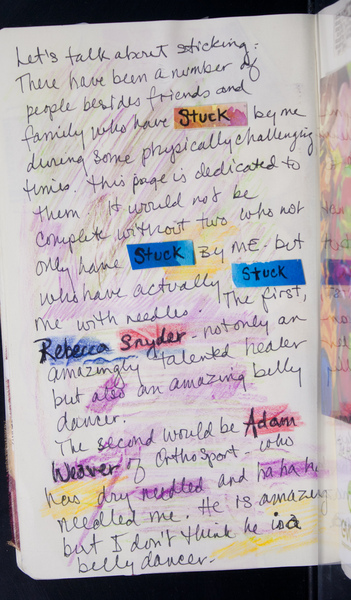 Let's talk about sticking:
There have been a number of
people besides friends and
family who have Stuck by me
during some physically challenging
times. This page is dedicated to
them. It would not be
complete without two who not
only have Stuck By ME but
who have actually Stuck
me with needles. The first,
Rebecca Snyder - not only an
amazingly talented healer
but also an amazing belly
dancer.
The second would be Adam
Weaver of OrthoSport - who
has dry needled and ha ha he
needled me. He is amazing
but I don't think he is a
belly dancer.